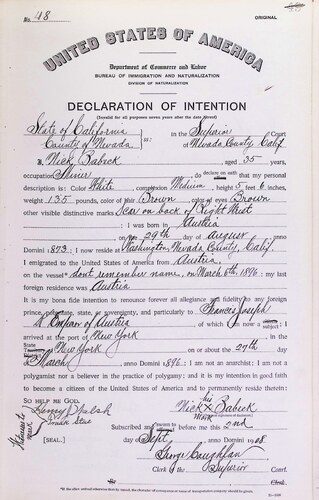 No. 48
ORIGINAL
UNITED STATES OF AMERICA
Department of Commerce and Labor
BUREAU OF IMMIGRATION AND NATURALIZATION
DIVISION OF NATURALIZATION
DECLARATION OF INTENTION
(Invalid for all purposes seven years after the date hereof)
State of California
County of Nevada ss: in the Superior Court
of Nevada County Calif
I, Nick Babich, aged 35 years,
occupation Miner, do declare on oath that my personal
description is: Color White, complexion Medium, height 5 feet 6 inches,
weight 135 pounds, color of hair Brown, color of eyes Brown
other visible distinctive marks Scar on back of Right Wrist
I was born in Austria
on the 29th day of August, anno
Domini 1873; I now reside at Washington, Nevada County, Calif.
I emigrated to the United States of America from Austria,
on the vessel* dont remember name, on March 6th, 1896; my last
foreign residence was Austria
It is my bona fide intention to renounce forever all allegiance and fidelity to any foreign
prince, potentate, state, or sovereignty, and particularly to Francis Joseph
Emperor of Austria, of which I am now a subject; I
arrived at the port of New York, in the
State of New York on or about the 27th day
of March, anno Domini 1896; I am not an anarchist; I am not a
polygamist nor a believer in the practice of polygamy; and it is my intention in good faith
to become a citizen of the United States of America and to permanently reside therein:
SO HELP ME GOD.
Nick his X mark Babich
Witness to mark
Subscribed and sworn to before me this 2nd
[SEAL.] day of Sept, anno Domini 1908
George Coughlan
Clerk of the Superior Court.